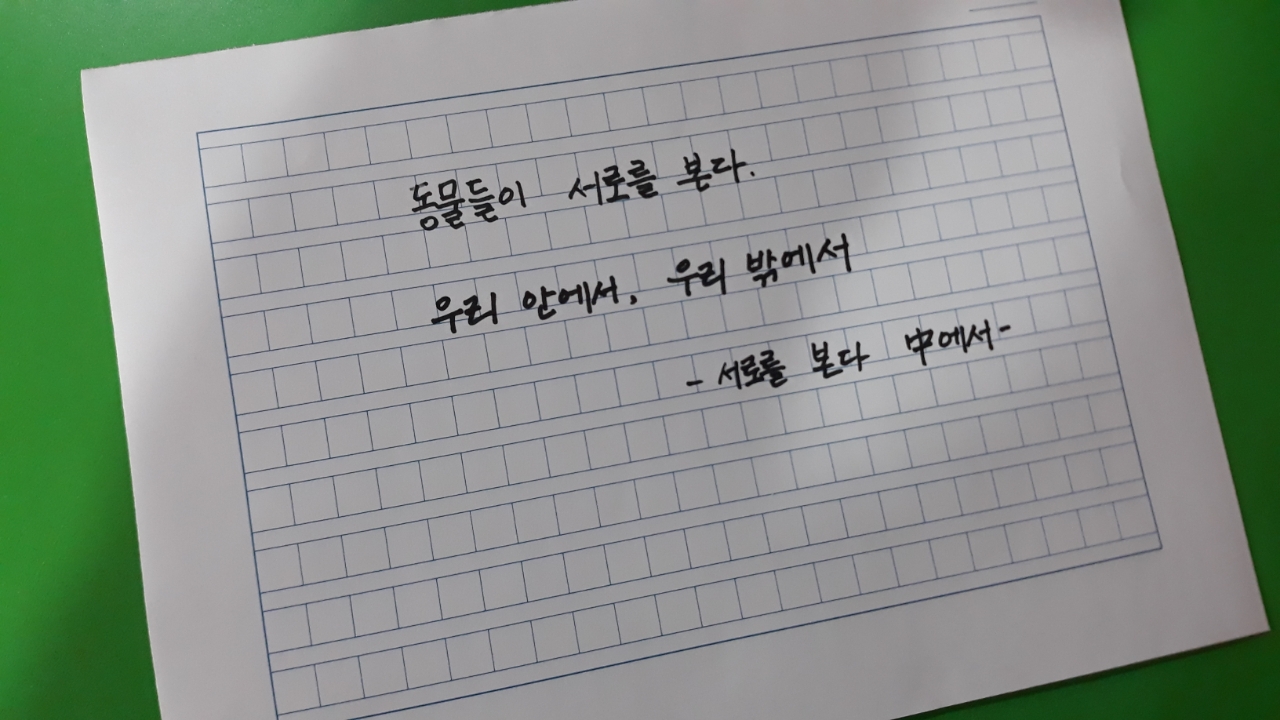 동물들이 서로를 본다.
우리 안에서, 우리 밖에서
- 서로를 본다 中에서-